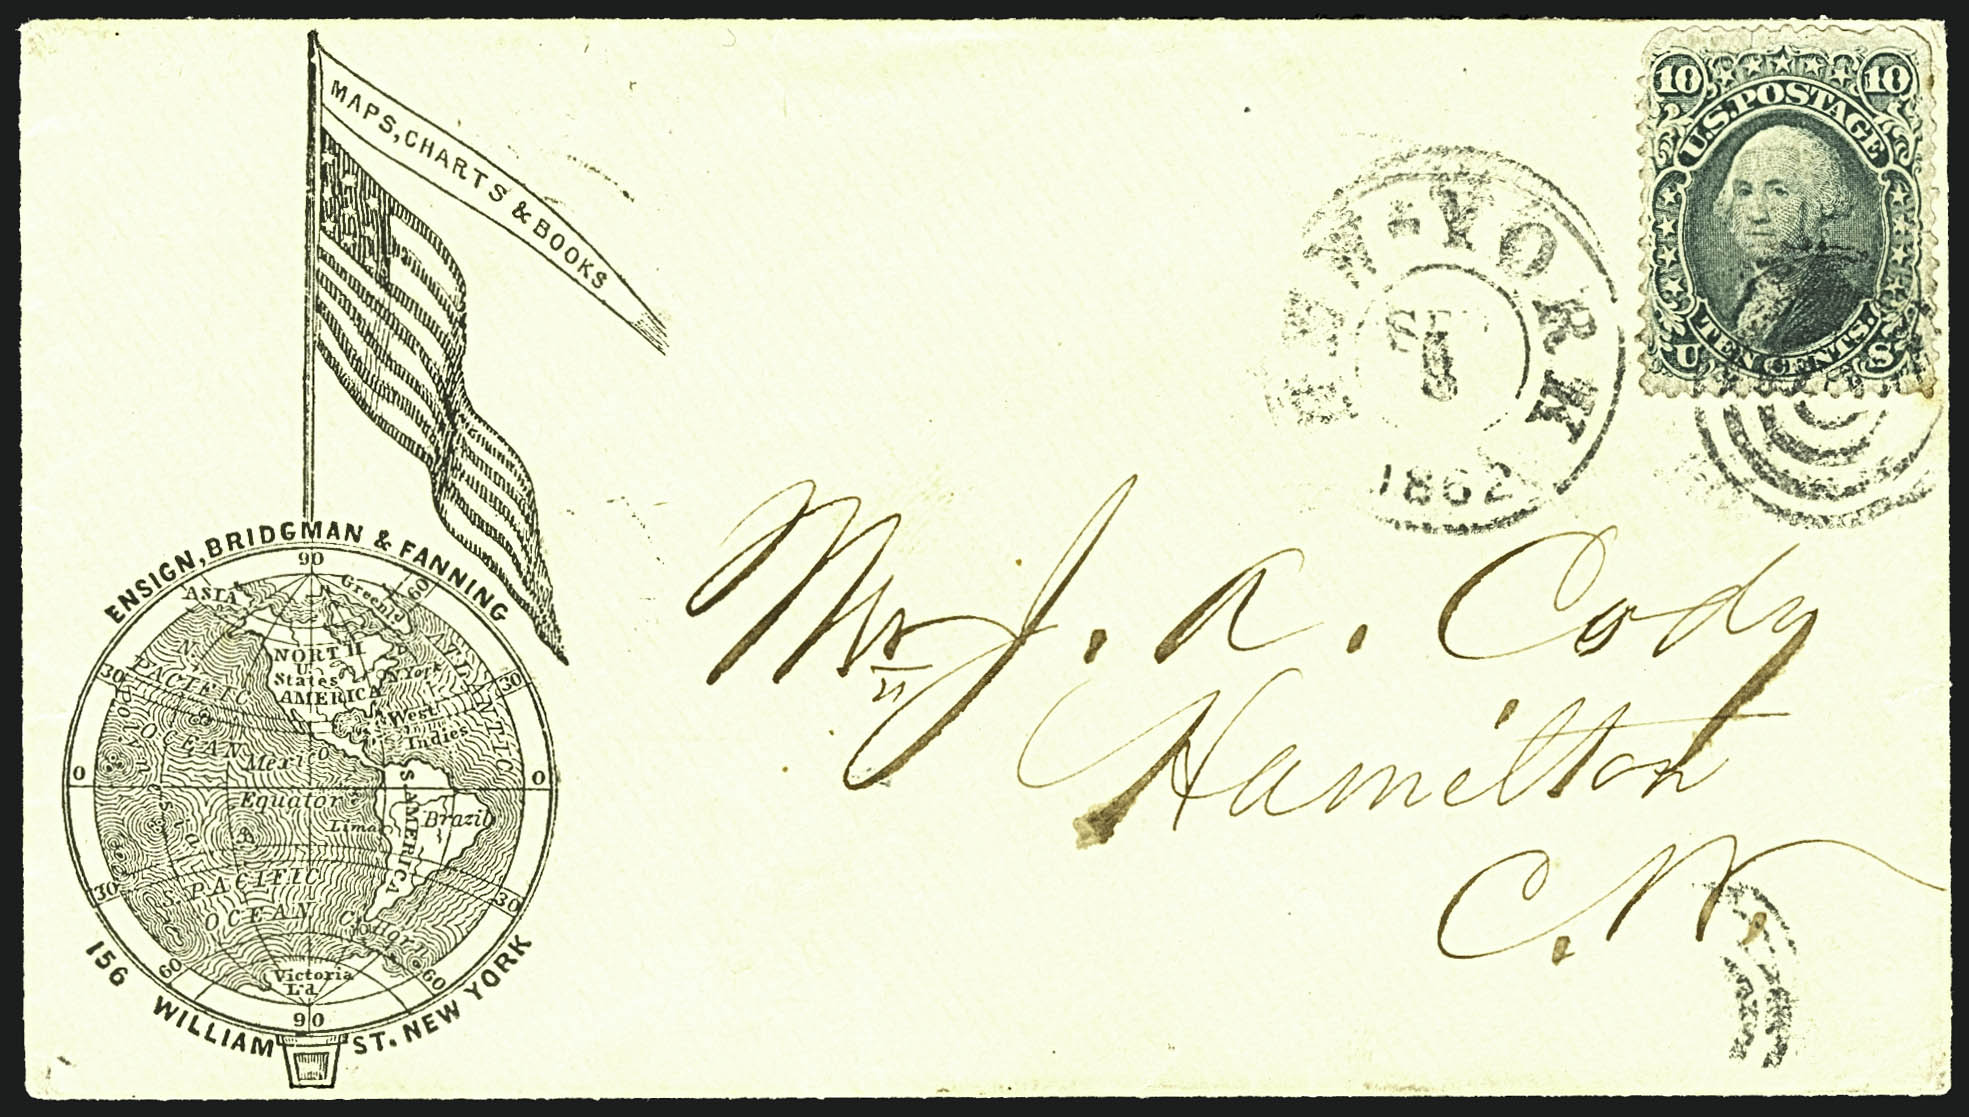 MAPS, CHARTS & BOOKS
ENSIGN, BRIDGMAN & FANNING
90
ASIA
Greenld
60
NORTH
U.
States
AMERICA
N. York
ATLANTIC
30
30
N.
PACIFIC
OCEAN
West
Indies
Mexico
0
0
Equator
Lima
S. AMERICA
Brazil
30
30
S. PACIFIC
OCEAN
C. Horn
60
60
Victoria
Ld
90
156 WILLIAM ST. NEW YORK
NEW-YORK
SEP
1862
10
10
U.S. POSTAGE
TEN CENTS.
U
S
Mr J. A. Cody
Hamilton
C. W.